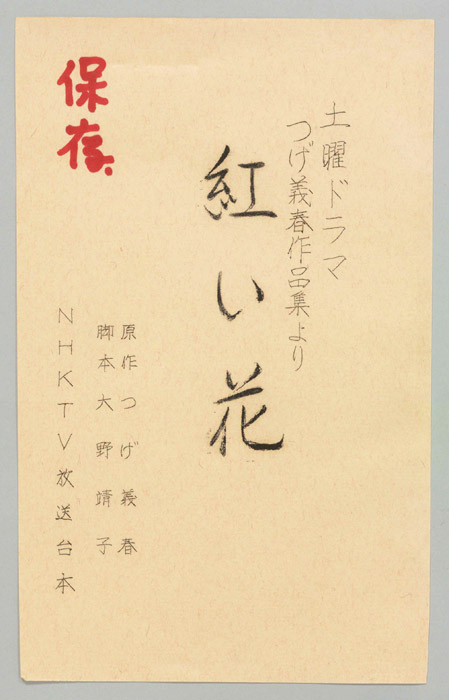 保存
土曜ドラマ
つげ義春作品集より
紅い花
原作つげ義春
脚本大野靖子
NHKTV放送台本